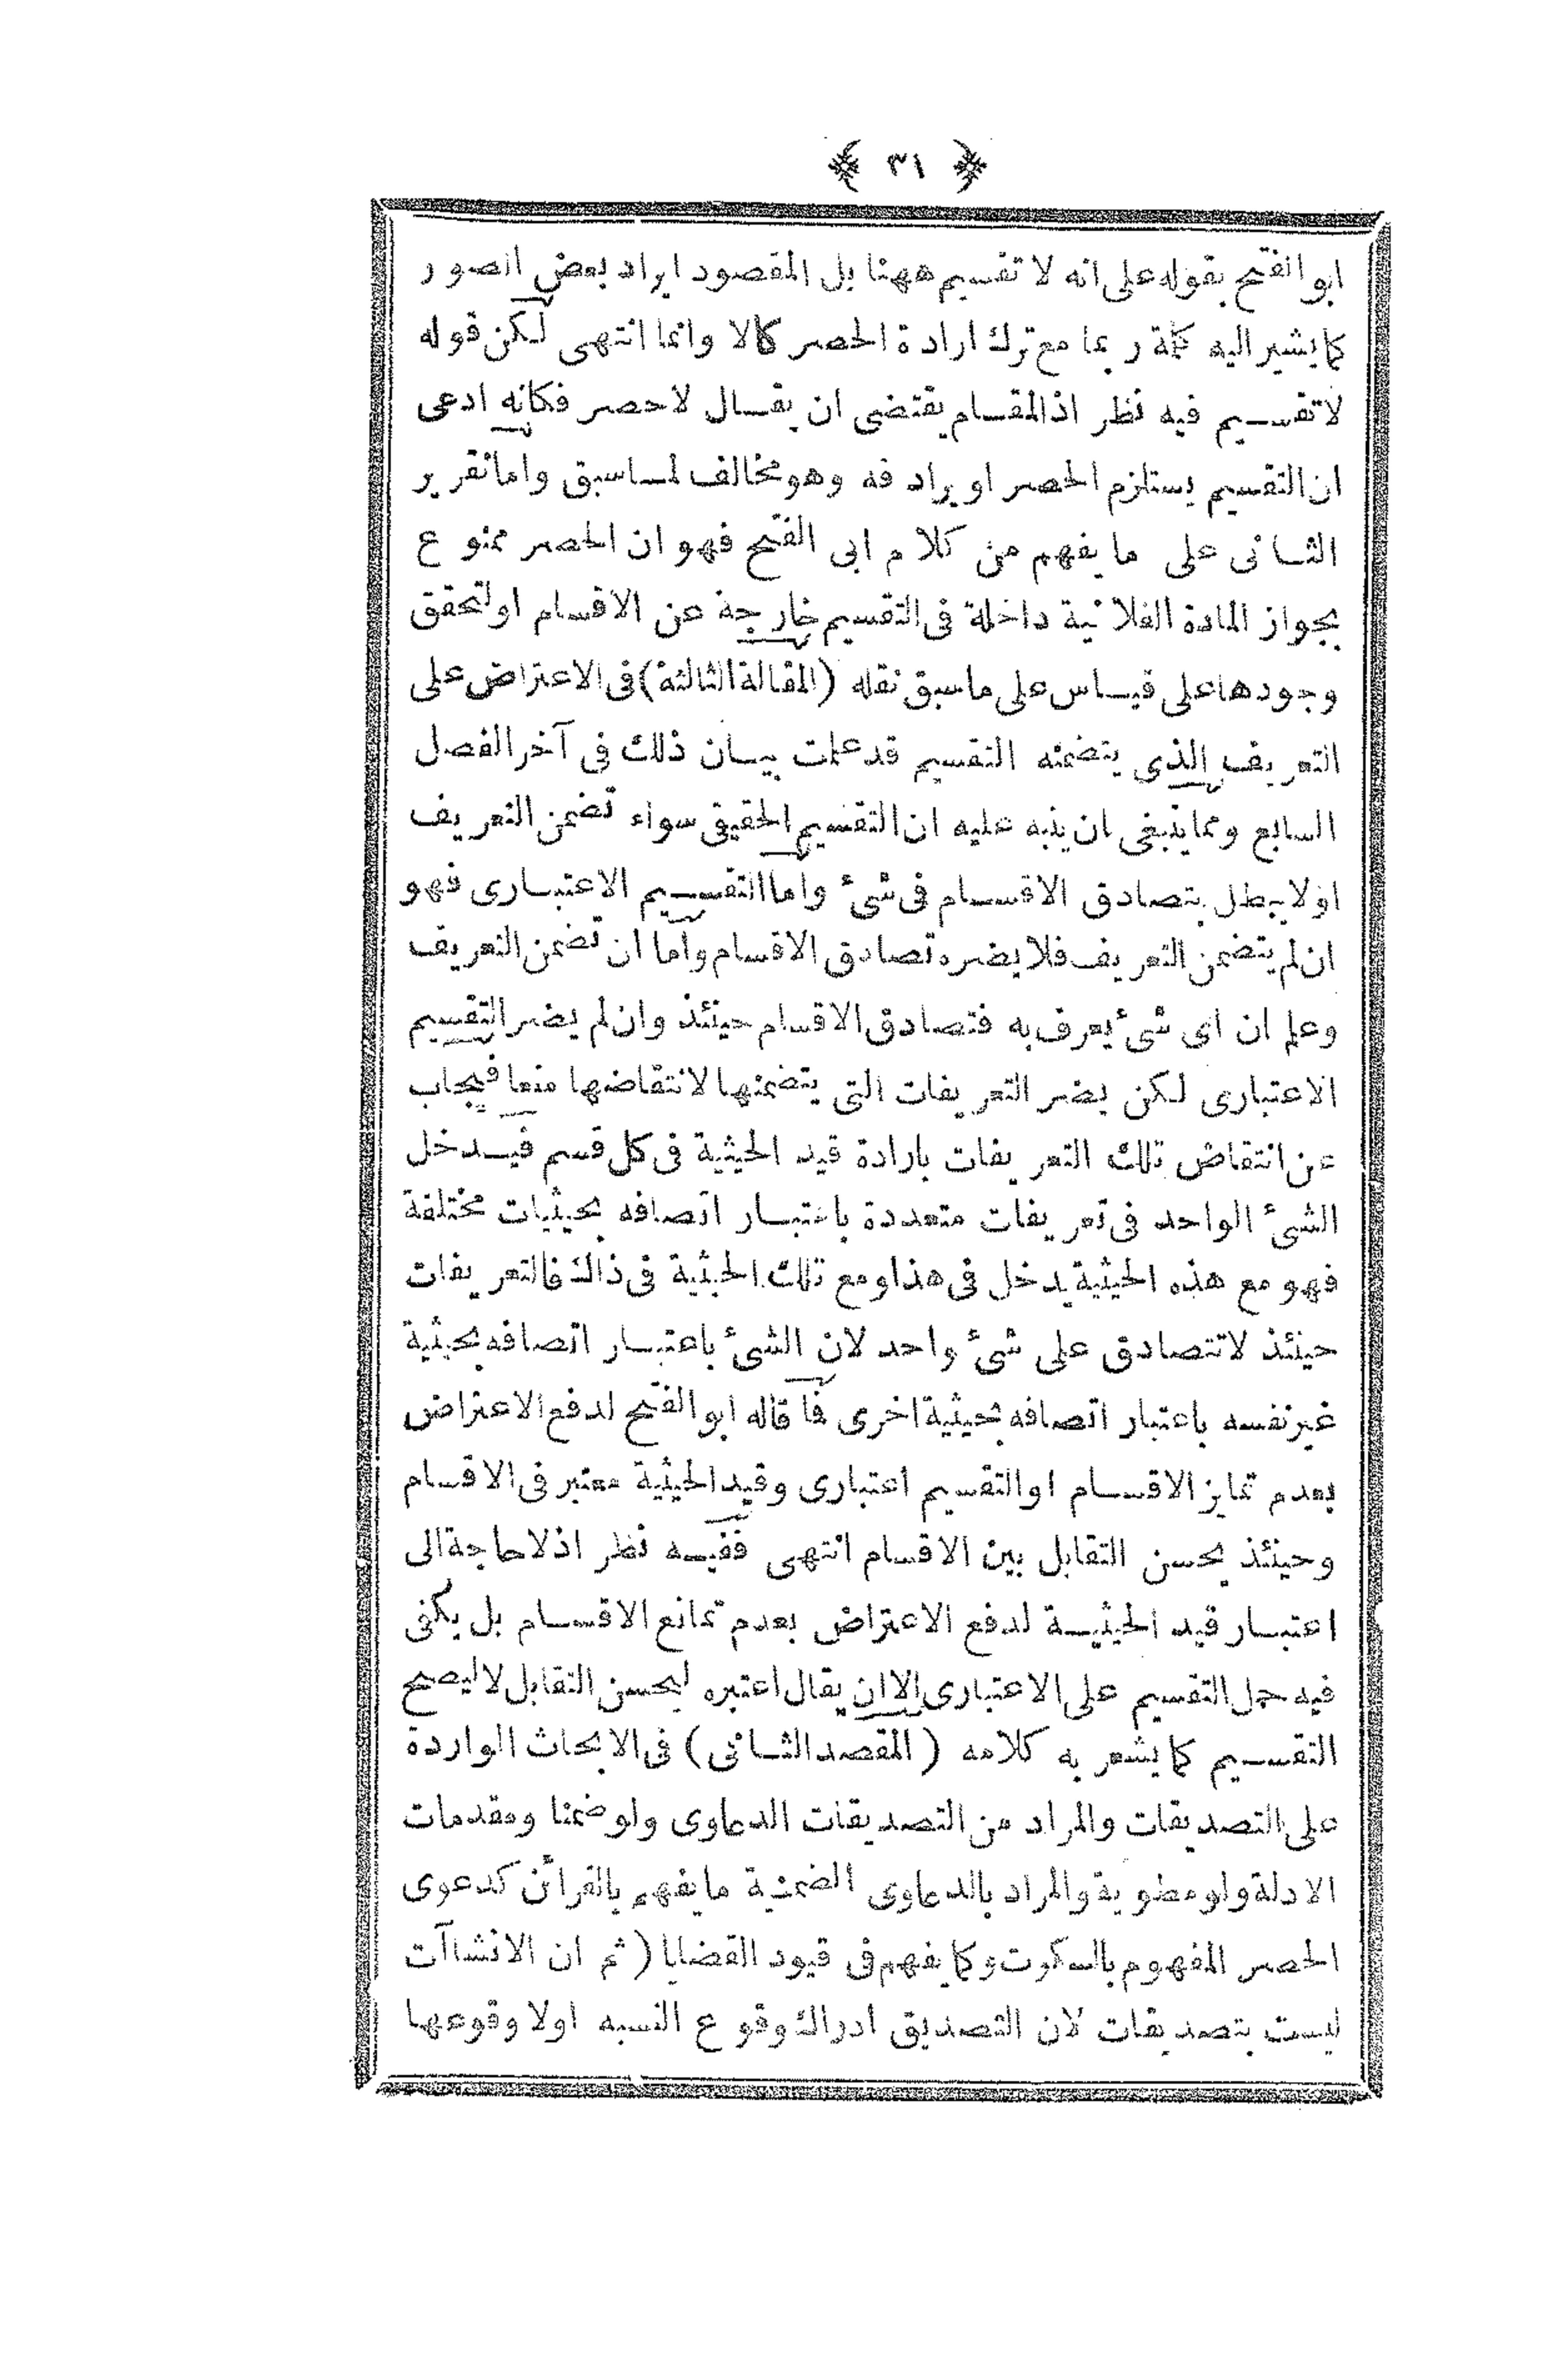 ﴿ ٣١ ﴾
ابو الفتح بقوله على انه لا تقسيم ههنا بل المقصود ايراد بعض الصور
كما يشير اليه كلمة ربما مع ترك ارادة الحصر كالا وانما انتهى لكن قوله
لا تقسيم فيه نظر اذ المقام يقتضى ان يقال لا حصر فكانه ادعى
ان التقسيم يستلزم الحصر او يرادفه وهو مخالف لما سبق واما تقرير
الثانى على ما يفهم من كلام ابى الفتح فهو ان الحصر ممنوع
بجواز المادة الفلانية داخلة فى التقسيم خارجة عن الاقسام او لتحقق
وجودها على قياس على ما سبق نقله (المقالة الثالثة) فى الاعتراض على
التعريف الذى يتضمنه التقسيم قد علمت بيان ذلك فى آخر الفصل
السابع ومما ينبغى ان ينبه عليه ان التقسيم الحقيقى سواء تضمن التعريف
اولا يبطل بتصادق الاقسام فى شئ واما التقسيم الاعتبارى فهو
ان لم يتضمن التعريف فلا يضره تصادق الاقسام واما ان تضمن التعريف
وعلم ان اى شئ يعرف به فتصادق الاقسام حينئذ وان لم يضر التقسيم
الاعتبارى لكن يضر التعريفات التى يتضمنها لانتقاضها منعا فيجاب
عن انتقاض تلك التعريفات بارادة قيد الحيثية فى كل قسم فيدخل
الشئ الواحد فى تعريفات متعددة باعتبار اتصافه بحيثيات مختلفة
فهو مع هذه الحيثية يدخل فى هذا ومع تلك الحيثية فى ذاك فالتعريفات
حينئذ لا تتصادق على شئ واحد لان الشئ باعتبار اتصافه بحيثية
غير نفسه باعتبار اتصافه بحيثية اخرى فما قاله ابو الفتح لدفع الاعتراض
بعدم تمايز الاقسام او التقسيم اعتبارى وقيد الحيثية معتبر فى الاقسام
وحينئذ يحسن التقابل بين الاقسام انتهى ففيه نظر اذ لا حاجة الى
اعتبار قيد الحيثية لدفع الاعتراض بعدم تمانع الاقسام بل يكفى
فيه حمل التقسيم على الاعتبارى الا ان يقال اعتبره ليحسن التقابل لا ليصح
التقسيم كما يشعر به كلامه (المقصد الثانى) فى الابحاث الواردة
على التصديقات والمراد من التصديقات الدعاوى ولو ضمنا ومقدمات
الادلة ولو مطوية والمراد بالدعاوى الضمنية ما يفهم بالقرائن كدعوى
الحصر المفهوم بالسكوت وكما يفهم فى قيود القضايا (ثم ان الانشاآت
ليست بتصديقات لان التصديق ادراك وقوع النسبه اولا وقوعها